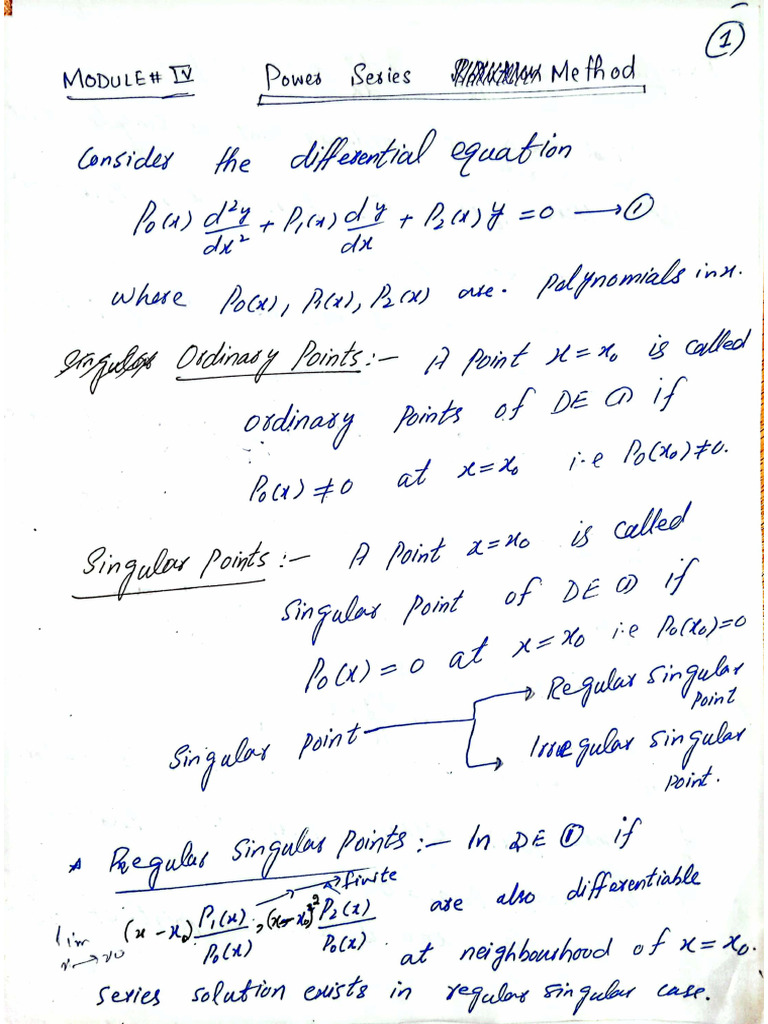 ①
MODULE# IV Power Series Method
Consider the differential equation
P₀(x) d²y/dx² + P₁(x) dy/dx + P₂(x) y = 0 → ①
where P₀(x), P₁(x), P₂(x) are. polynomials in x.
Singular Ordinary Points:- A Point x = x₀ is called
ordinary Points of DE ① if
P₀(x) ≠ 0 at x = x₀ i.e P₀(x₀) ≠ 0.
Singular Points:- A Point x = x₀ is called
Singular Point of DE ① if
P₀(x) = 0 at x = x₀ i.e P₀(x₀) = 0
Singular Point → Regular Singular Point
→ Irregular Singular Point.
* Regular Singular Points:- In DE ① if
lim x→x₀ (x - x₀) P₁(x)/P₀(x), (x - x₀)² P₂(x)/P₀(x) → finite are also differentiable
at neighbourhood of x = x₀.
Series solution exists in regular singular case.